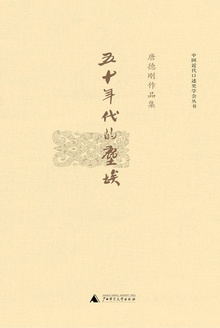 中国近代口述史学会丛书
唐德刚作品集
五十年代的塵埃
广西师范大学出版社